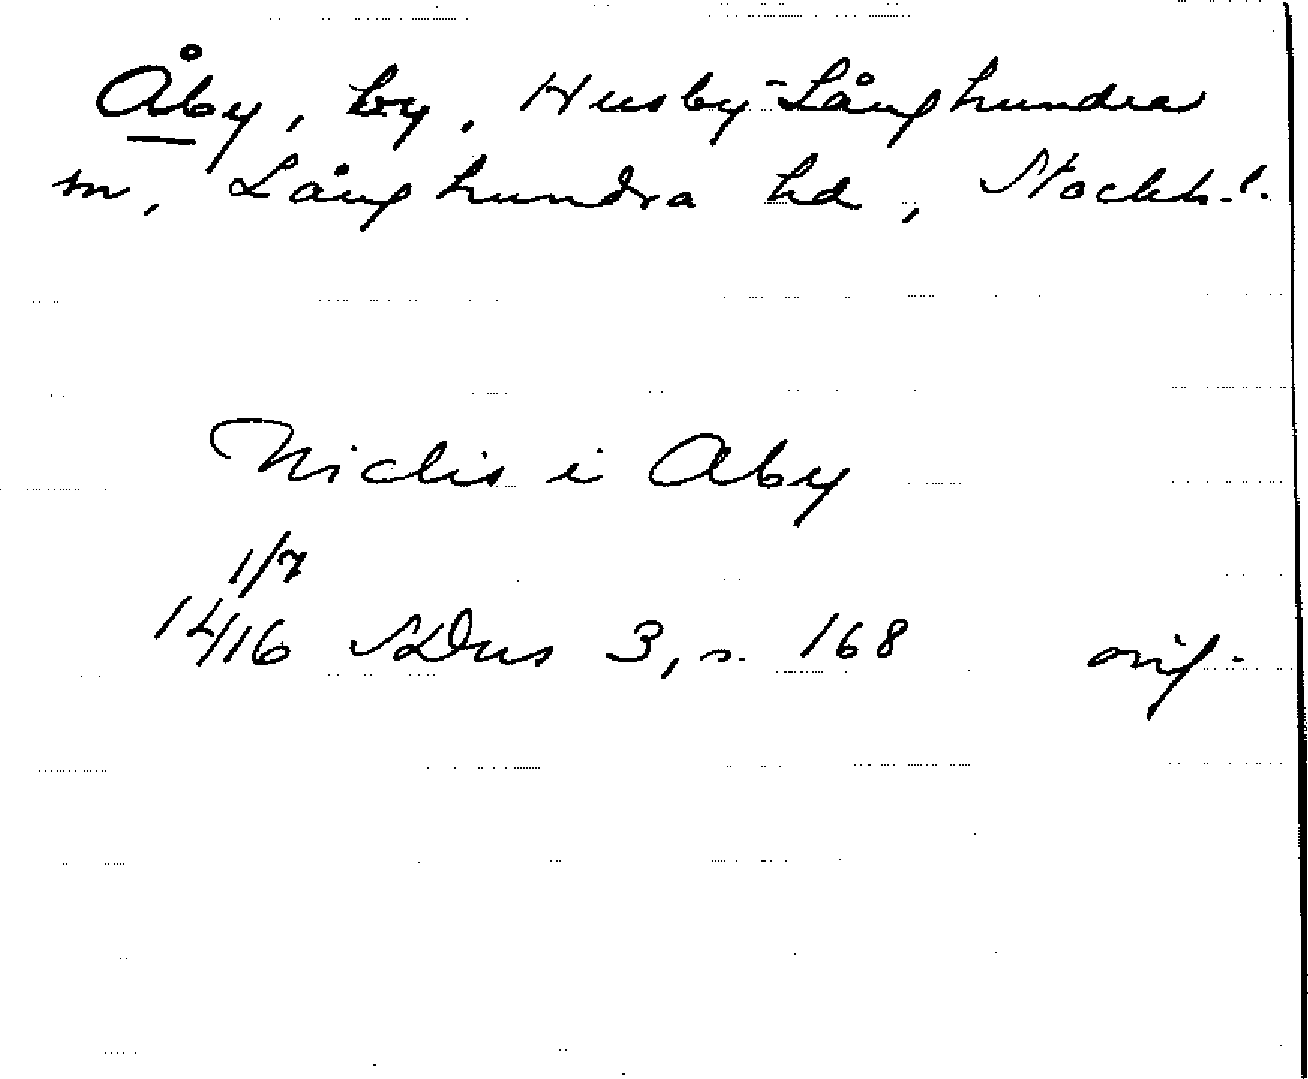 Åby, by, Husby-Långhundra
sn, Långhundra hd, Stockh. l.
Niclis i Aby
1/7
1416 SDns 3, s. 168 orig.